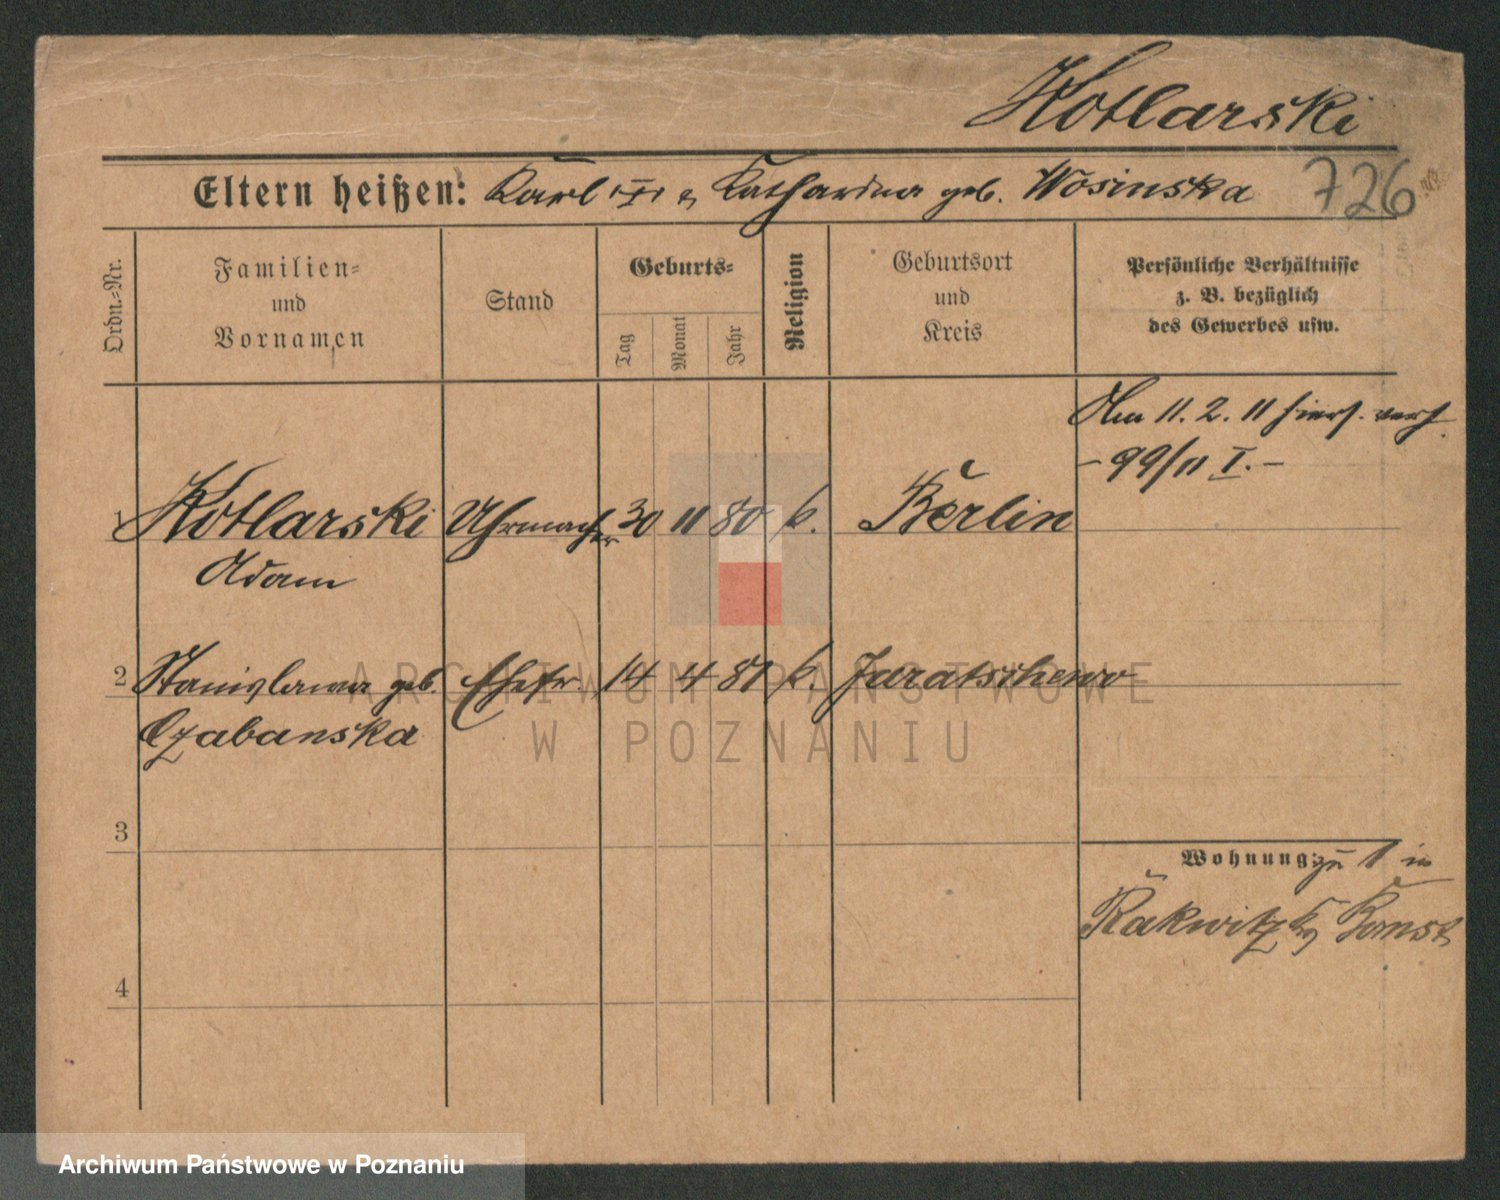 Kotlarski
Eltern heißen: Karl "I" u Katharina geb. Wosinska 726
Ordn.-Nr.
Familien- und Vornamen
Stand
Geburts-
Tag Monat Jahr
Religion
Geburtsort und Kreis
Persönliche Verhältnisse
z. B. bezüglich
des Gewerbes usw.
Am 11. 2. 11 hiers. verh.
- 99/11 I. -
1 Kotlarski Uhrmacher 30 11 80 k. Berlin
Adam
2 Stanislawa geb. Ehefr. 14 4 81 k. Jaratschewo
Czabanska
3
Wohnung: zu 1 in
Rakwitz Kr Bomst
4
ARCHIWUM PAŃSTWOWE
W POZNANIU
Archiwum Państwowe w Poznaniu